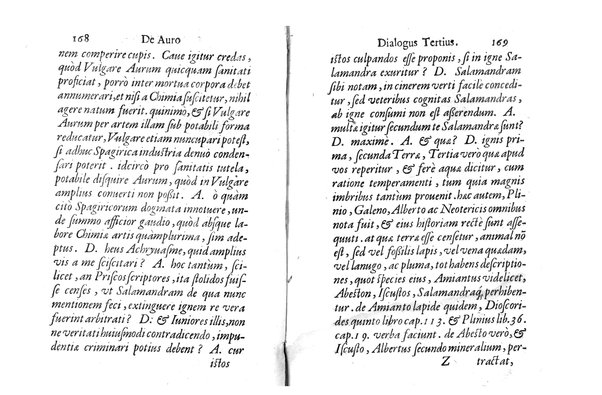 168 De Auro
nem comperire cupis. Caue igitur credas,
quòd Vulgare Aurum quicquam sanitati
proficiat, porrò inter mortua corpora debet
annumerari, et nisi à Chimia suscitetur, nihil
agere natum fuerit. quinimò, & si Vulgare
Aurum per artem illam sub potabili forma
reducatur, Vulgare etiam nuncupari potest,
si adhuc Spagirica industria denuò conden-
sari poterit. idcircò pro sanitatis tutela,
potabile disquire Aurum, quòd in Vulgare
amplius conuerti non possit. A. ò quam
citò Spagyricorum dogmata innotuere, un-
de summo afficior gaudio, quòd absque la-
bore Chimiæ artis quamplurima, sim ade-
ptus. D. heus Achryuasme, quid amplius
vis à me sciscitari? A. hoc tantùm, sci-
licet, an Priscos scriptores, ita stolidos fuis-
se censes, vt Salamandram de qua nunc
mentionem feci, extinguere ignem re vera
fuerint arbitrati? D. & Iuniores illis, non
ne veritati huiusmodi contradicendo, impu-
dentiæ criminari potius debent? A. cur
istos
Dialogus Tertius. 169
istos culpandos esse proponis, si in igne Sa-
lamandra exuritur? D. Salamandram
sibi notam, in cinerem verti facile concedi-
tur, sed veteribus cognitas Salamandras,
ab igne consumi non est asserendum. A.
multæ igitur secundum te Salamandræ sunt?
D. maximè. A. & quæ? D. ignis pri-
ma, secunda Terræ, Tertia verò quæ apud
vos reperitur, & ferè aquæ dicitur, cum
ratione temperamenti, tum quia magnis
imbribus tantùm prouenit. hæc autem, Pli-
nio, Galeno, Alberto ac Neotericis omnibus
nota fuit, & eius historiam rectè sunt asse-
quuti. at quæ terræ esse censetur, animal nō
est, sed vel fossilis lapis, vel vena quædam,
vel lanugo, ac pluma, tot habens descriptio-
nes, quot species eius, Amiantus videlicet,
Abeston, Iscustos, Salamandra perhiben-
tur. de Amianto lapide quidem, Dioscori-
des quinto libro cap. 113. & Plinius lib. 36.
cap. 19. verba faciunt. de Abesto verò, &
Iscusto, Albertus secundo mineralium, per-
Z tractat,